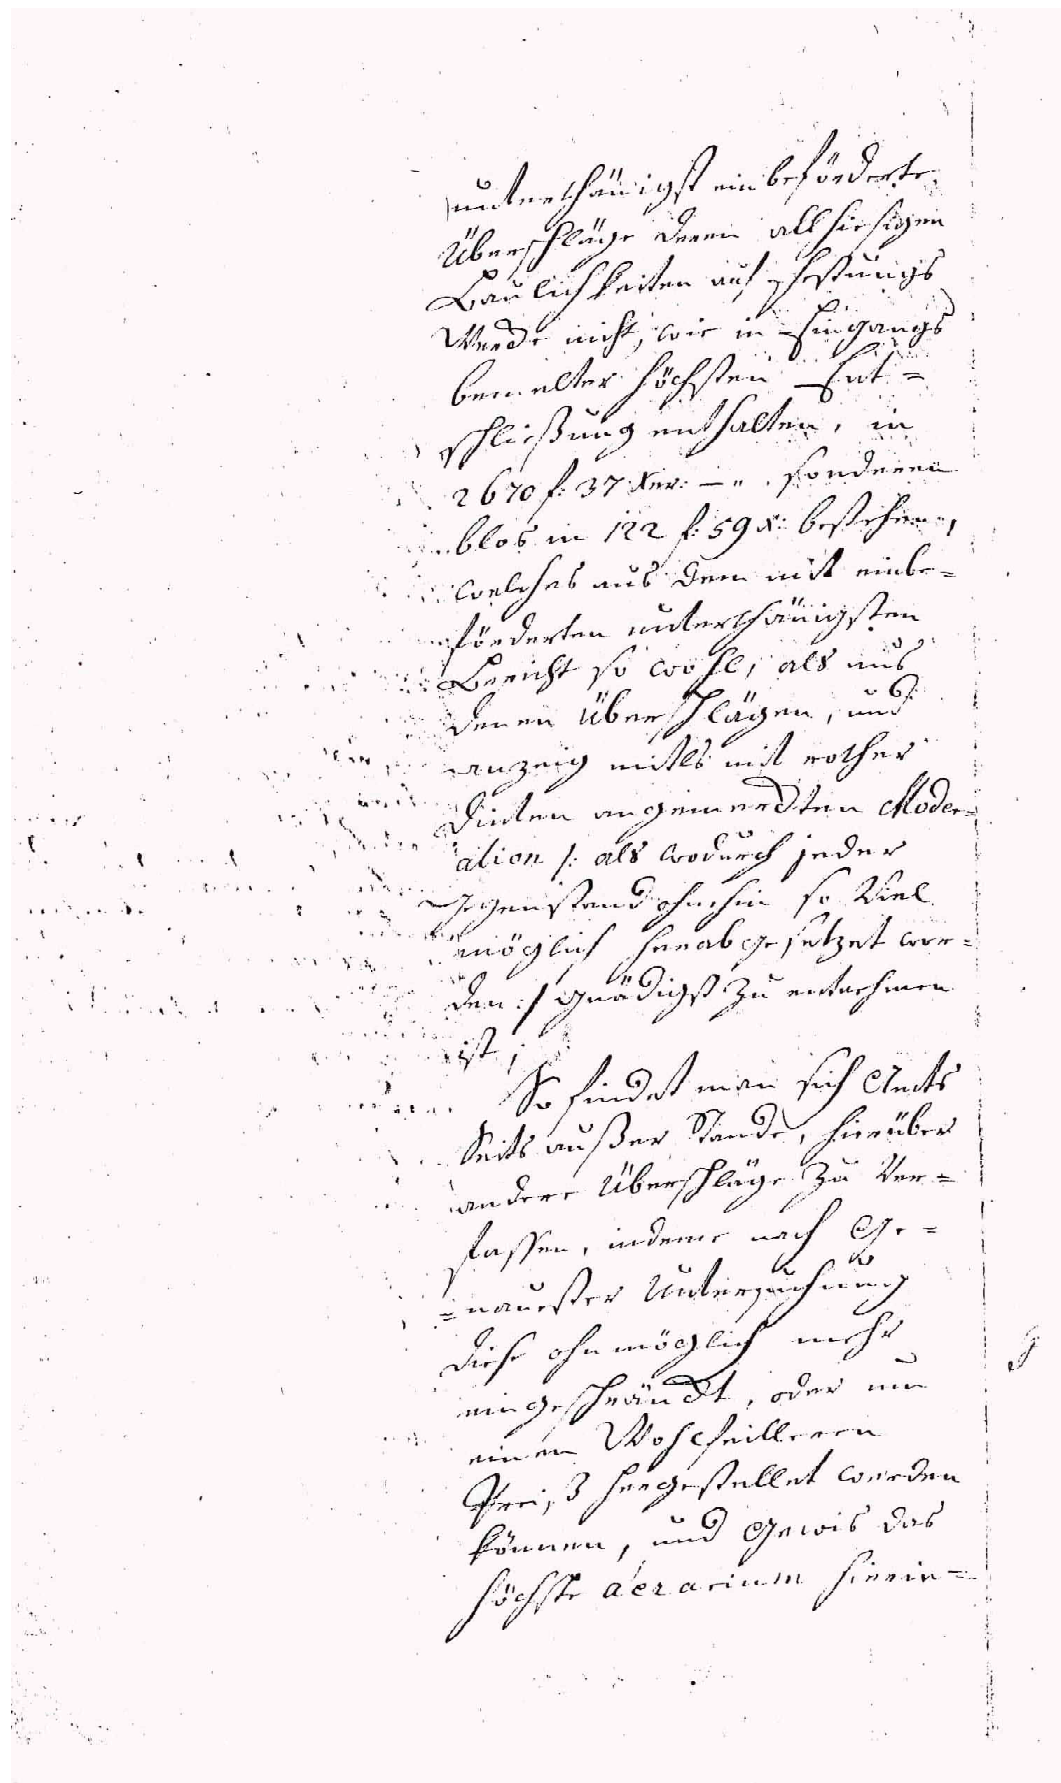 unterthänigst einbeförderte
Überschläge deren allhiesigen
Baulichkeiten auf Festungs
Werde nicht, wie in Eingangs
bemelter höchsten Ent=
schließung enthalten, in
2670 f: 37 Xer: —„ sonderen
blos in 122 f: 59 x: bestehen,
welches aus dem mit einbe=
förderten unterthänigsten
Bericht so wohl, als aus
denen Überschlägen, und
anzeig mitls mit rother
Dinten angemerckten Moder=
ation /: als wodurch jeder
Gegenstand ohnehin so Viel
möglich herabgesetzet wor=
den :/ gnädigst zu entnehmen
ist;
So findet man sich Amts
Seits außer Stande, hierüber
andere Überschläge zu Ver=
fassen, indeme nach Ge=
=nauester Untersuchung
diese ohnmöglich mehr
eingeschränckt, oder um
einen Wohlfeilleren
Preiß hergestellet werden
können, und Gewis das
höchste aerarium hierin=